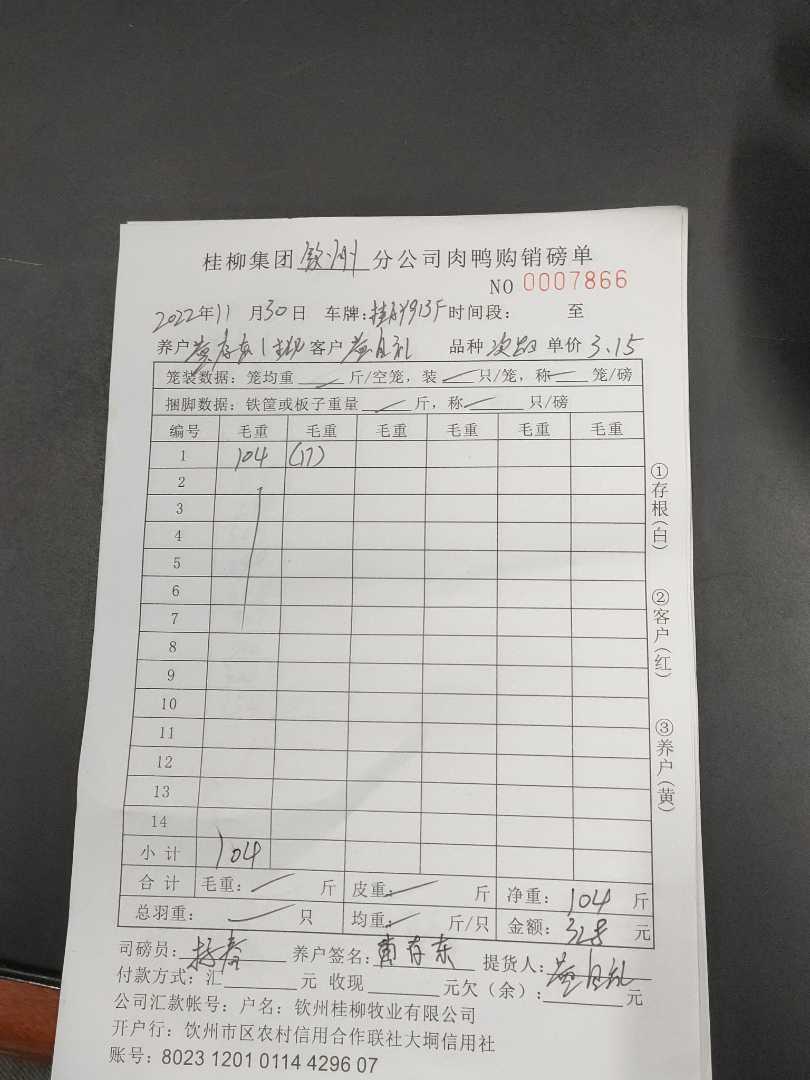 桂柳集团钦州分公司肉鸭购销磅单
NO 0007866
2022年11月30日 车牌: 913F 时间段: 至
养户 客户 品种 次品 单价 3.15
笼装数据：笼均重 斤/空笼，装 只/笼，称 笼/磅
捆脚数据：铁筐或板子重量 斤，称 只/磅
编号 毛重 毛重 毛重 毛重 毛重 毛重
1 104 (17)
2
3
4
5
6
7
8
9
10
11
12
13
14
小计 104
合计 毛重： 斤 皮重： 斤 净重：104 斤
总羽重： 只 均重： 斤/只 金额：328 元
司磅员： 养户签名： 存东 提货人：
付款方式：汇 元 收现 元欠（余）： 元
公司汇款帐号：户名：钦州桂柳牧业有限公司
开户行：钦州市区农村信用合作联社大垌信用社
账号：8023 1201 0114 4296 07
①存根（白）
②客户（红）
③养户（黄）